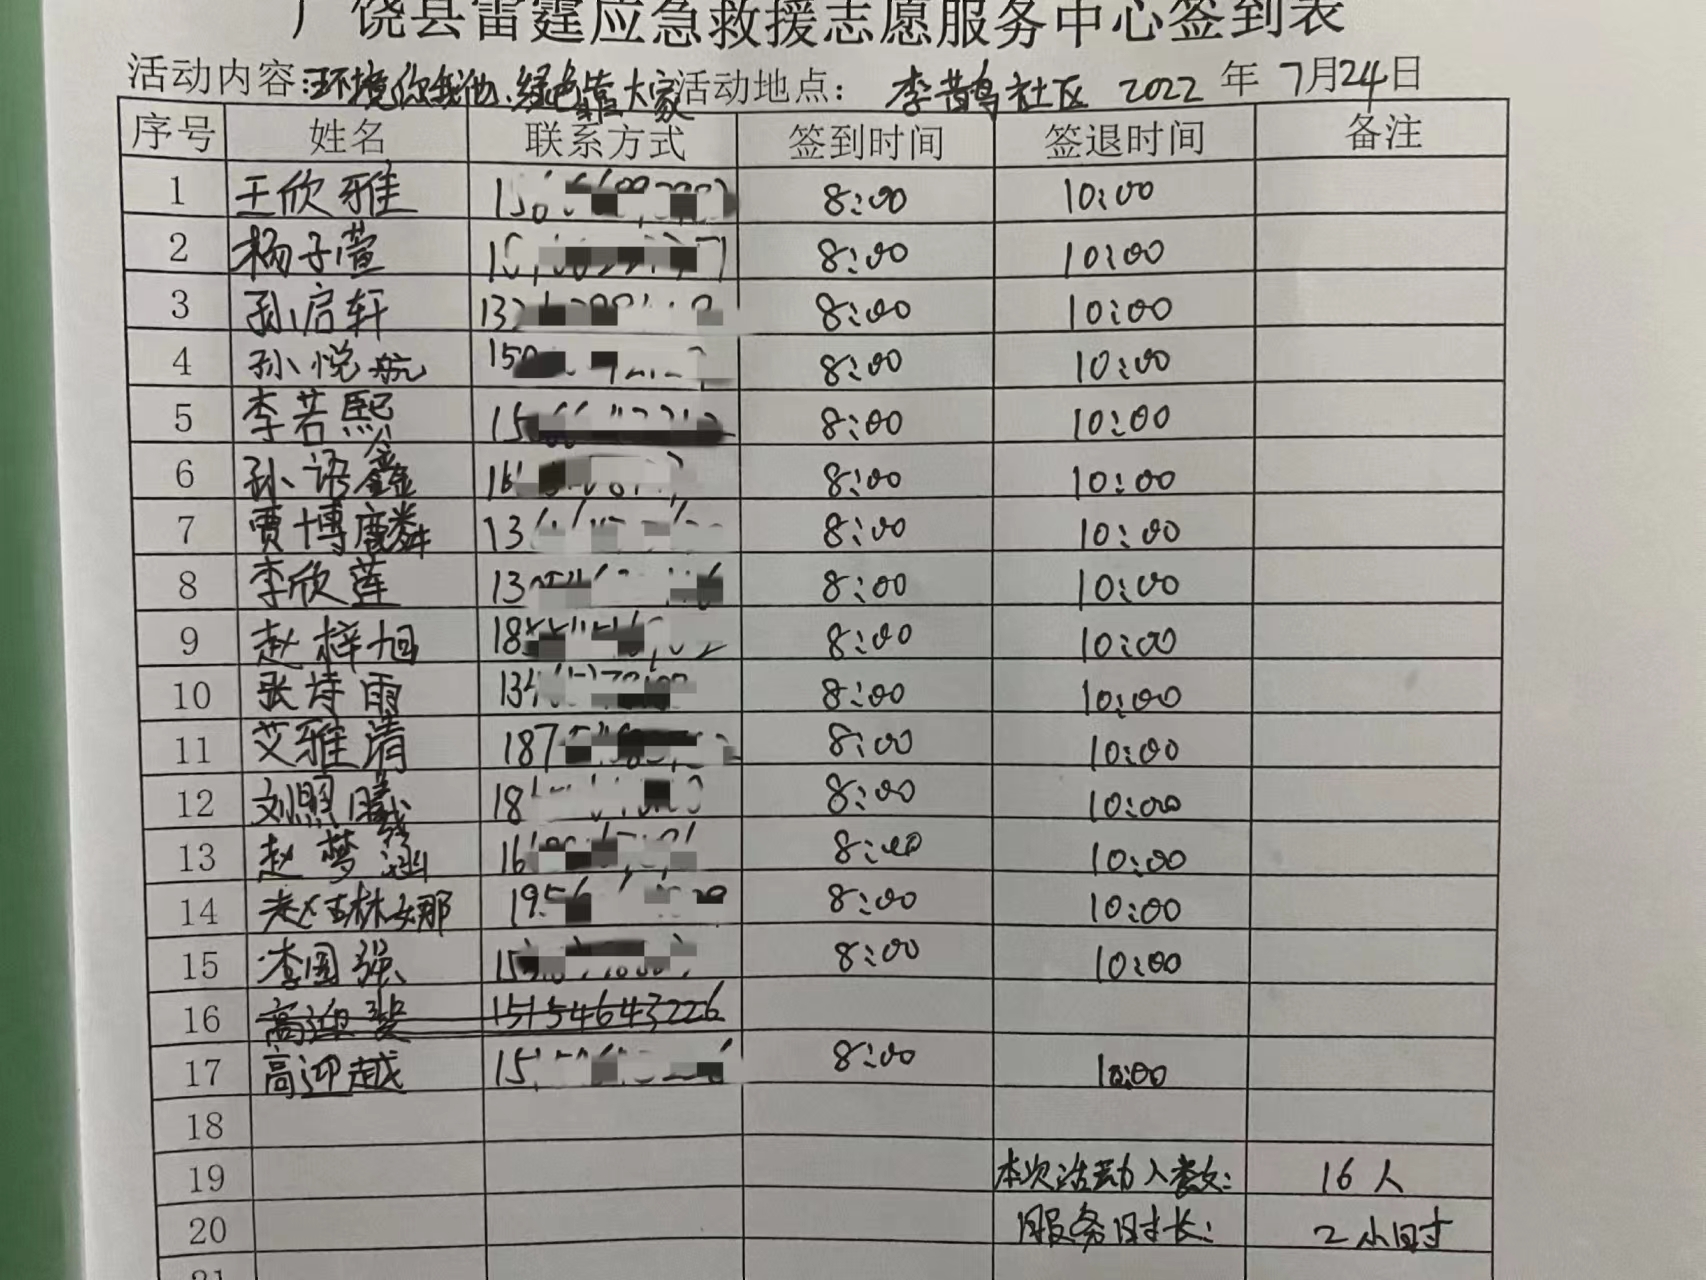 广饶县雷霆应急救援志愿服务中心签到表
活动内容:环境你我他、绿色靠大家 活动地点: 李鹊社区 2022年7月24日
序号 姓名 联系方式 签到时间 签退时间 备注
1 王欣雅 8:00 10:00
2 杨子萱 8:00 10:00
3 孙启轩 8:00 10:00
4 孙悦航 8:00 10:00
5 李若熙 8:00 10:00
6 孙语鑫 8:00 10:00
7 贾博麟 8:00 10:00
8 李欣莲 8:00 10:00
9 赵梓旭 8:00 10:00
10 张诗雨 8:00 10:00
11 艾雅清 8:00 10:00
12 刘照曦 8:00 10:00
13 赵梦涵 8:00 10:00
14 赵林娜 8:00 10:00
15 李国强 8:00 10:00
16 高迎 15154643226
17 高迎越 8:00 10:00
18
19 本次活动人数: 16人
20 服务时长: 2小时
21